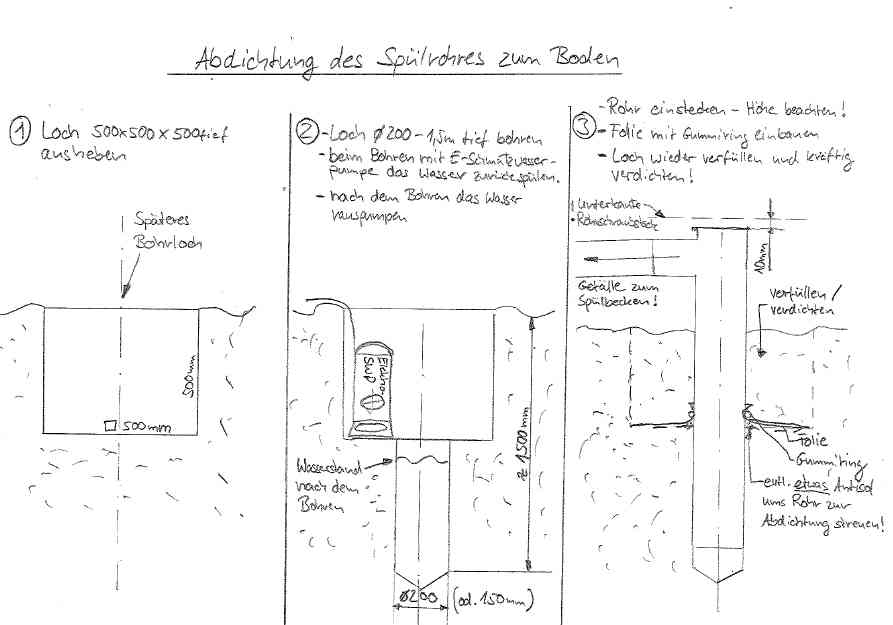 Abdichtung des Spülrohres zum Boden
① Loch 500x500x500 tief
ausheben
Späteres
Bohrloch
500mm
□ 500mm
② - Loch ø200 - 1,5m tief bohren
- beim Bohren mit E-Schmutzwasser-
pumpe das Wasser zurückspülen.
- nach dem Bohren das Wasser
rauspumpen
Elektro-
SWP
Wasserstand
nach dem
Bohren
≈ 1500mm
ø200 (od. 150mm)
③ - Rohr einstecken - Höhe beachten!
- Folie mit Gummiring einbauen
- Loch wieder verfüllen und kräftig
verdichten!
Unterkante
Rohrschraubstock
10mm
Gefälle zum
Spülbecken!
verfüllen/
verdichten
Folie
Gummiring
evtl. etwas Antisol
ums Rohr zur
Abdichtung streuen!